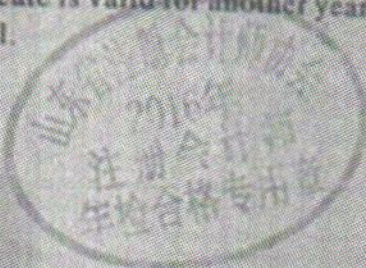 is valid for another year
山东省注册会计师协会
2016年
注册会计师
年检合格专用章